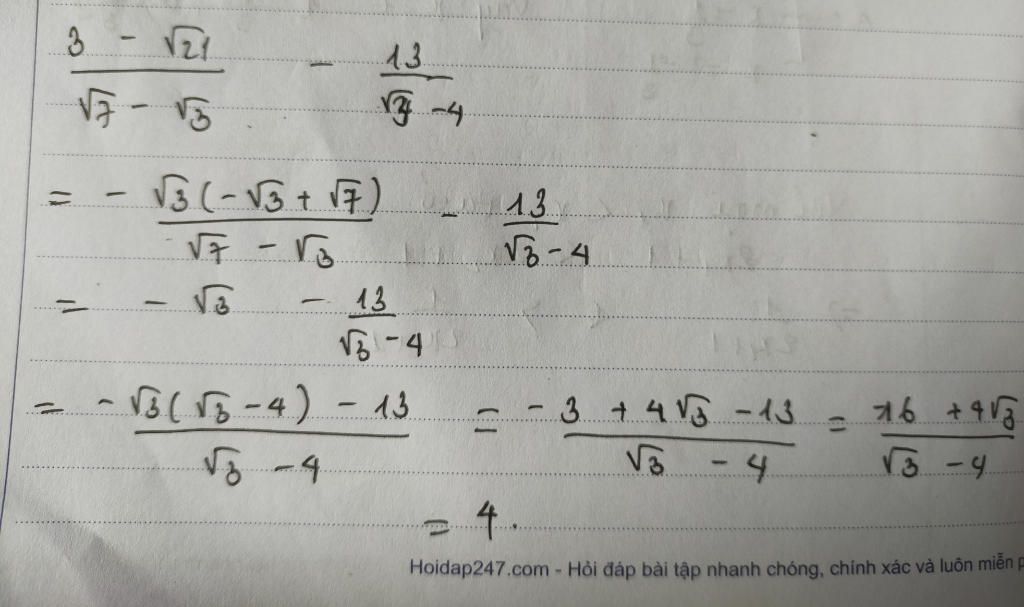 (3 - √21)/(√7 - √3) - 13/(√3 - 4)
= - √3(-√3 + √7)/(√7 - √3) - 13/(√3 - 4)
= - √3 - 13/(√3 - 4)
= (-√3(√3 - 4) - 13)/(√3 - 4) = (-3 + 4√3 - 13)/(√3 - 4) = (-16 + 4√3)/(√3 - 4)
= 4.
Hoidap247.com - Hỏi đáp bài tập nhanh chóng, chính xác và luôn miễn